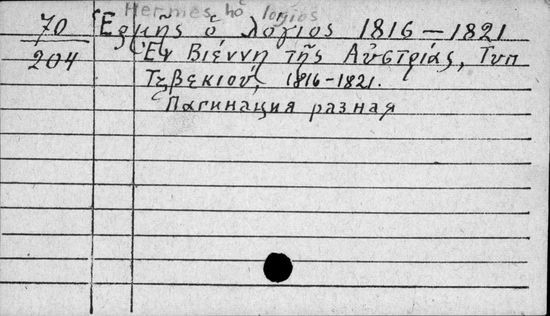 Hermes ho logios
70 Ἑρμῆς ὁ λόγιος 1816-1821
204 Ἐν Βιέννῃ τῆς Αὐστρίας, Τυπ
Τζβεκίου, 1816-1821.
Пагинация разная